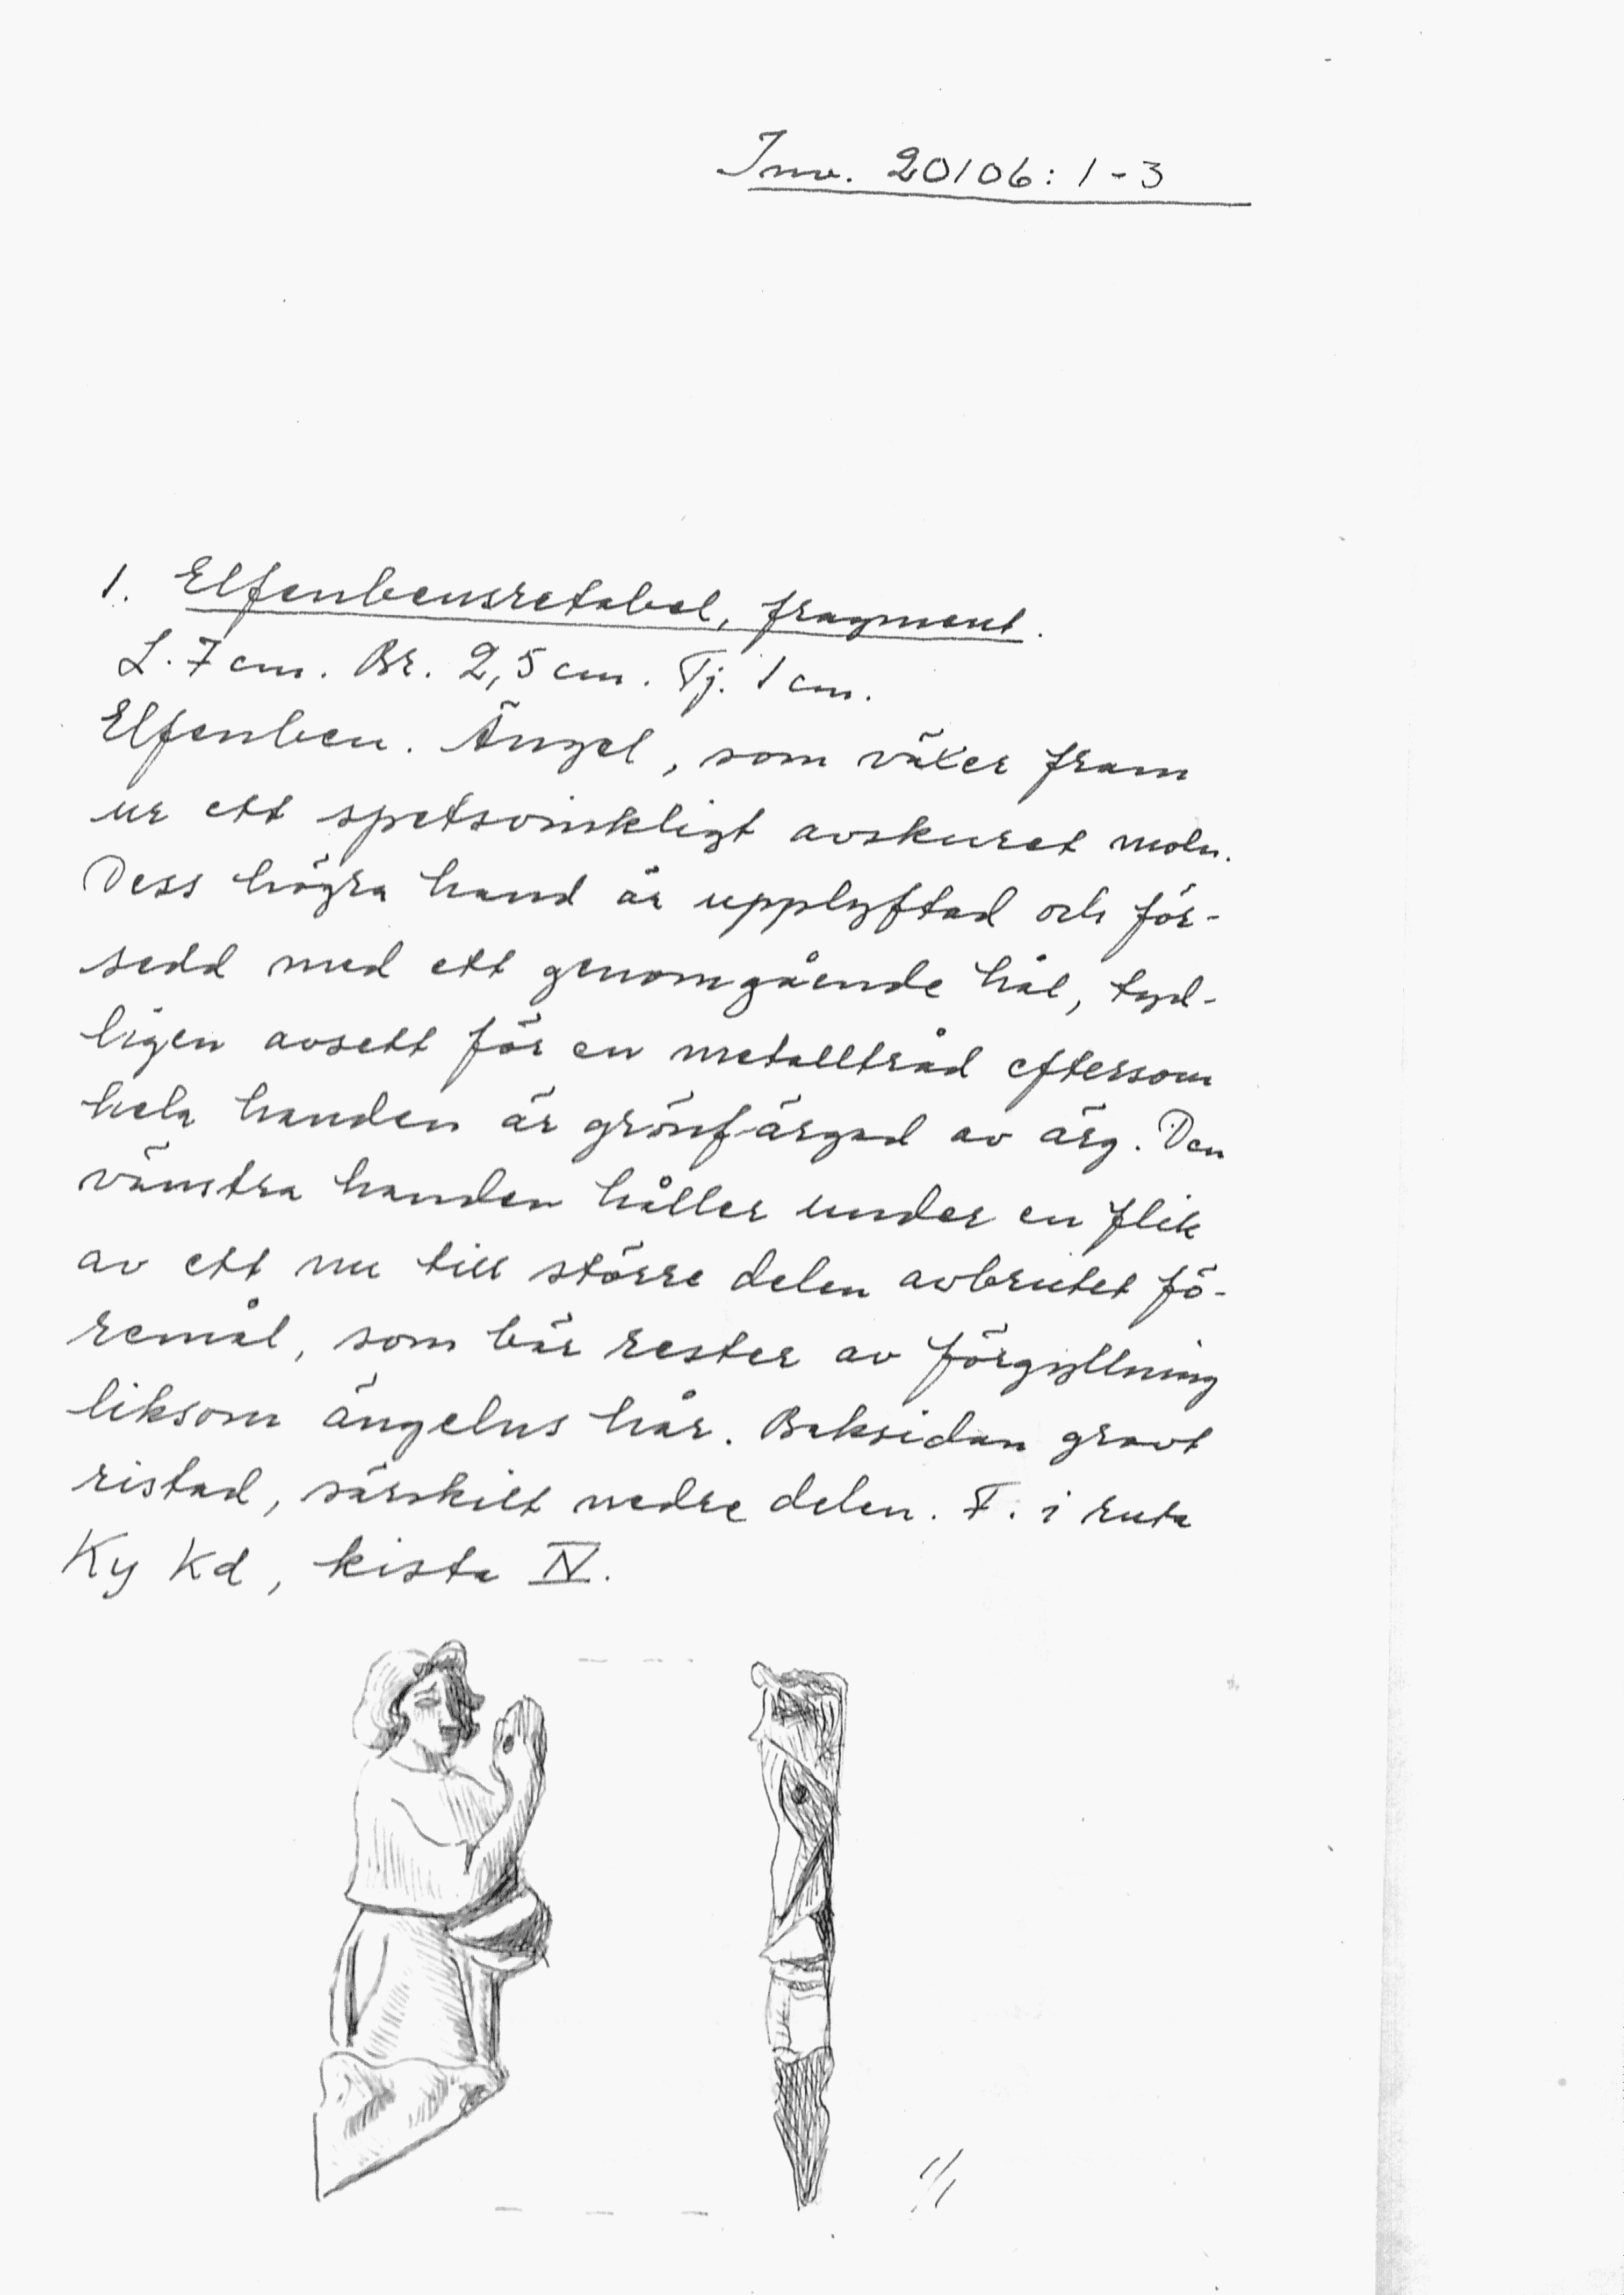 Inv. 20106: 1-3
1. Elfenbensretabel, fragment.
L. 7 cm. Br. 2,5 cm. Tj. 1 cm.
Elfenben. Ängel, som växer fram
ur ett spetsvinkligt avskuret moln.
Dess högra hand är upplyftad och för-
sedd med ett genomgående hål, tyd-
ligen avsett för en metalltråd eftersom
hela handen är grönfärgad av ärg. Den
vänstra handen håller under en flik
av ett nu till större delen avbrutet fö-
remål, som bär rester av förgyllning
liksom ängelns hår. Baksidan grovt
ristad, särskilt nedre delen. F. i ruta
Ky Kd, kista IV.
1/1